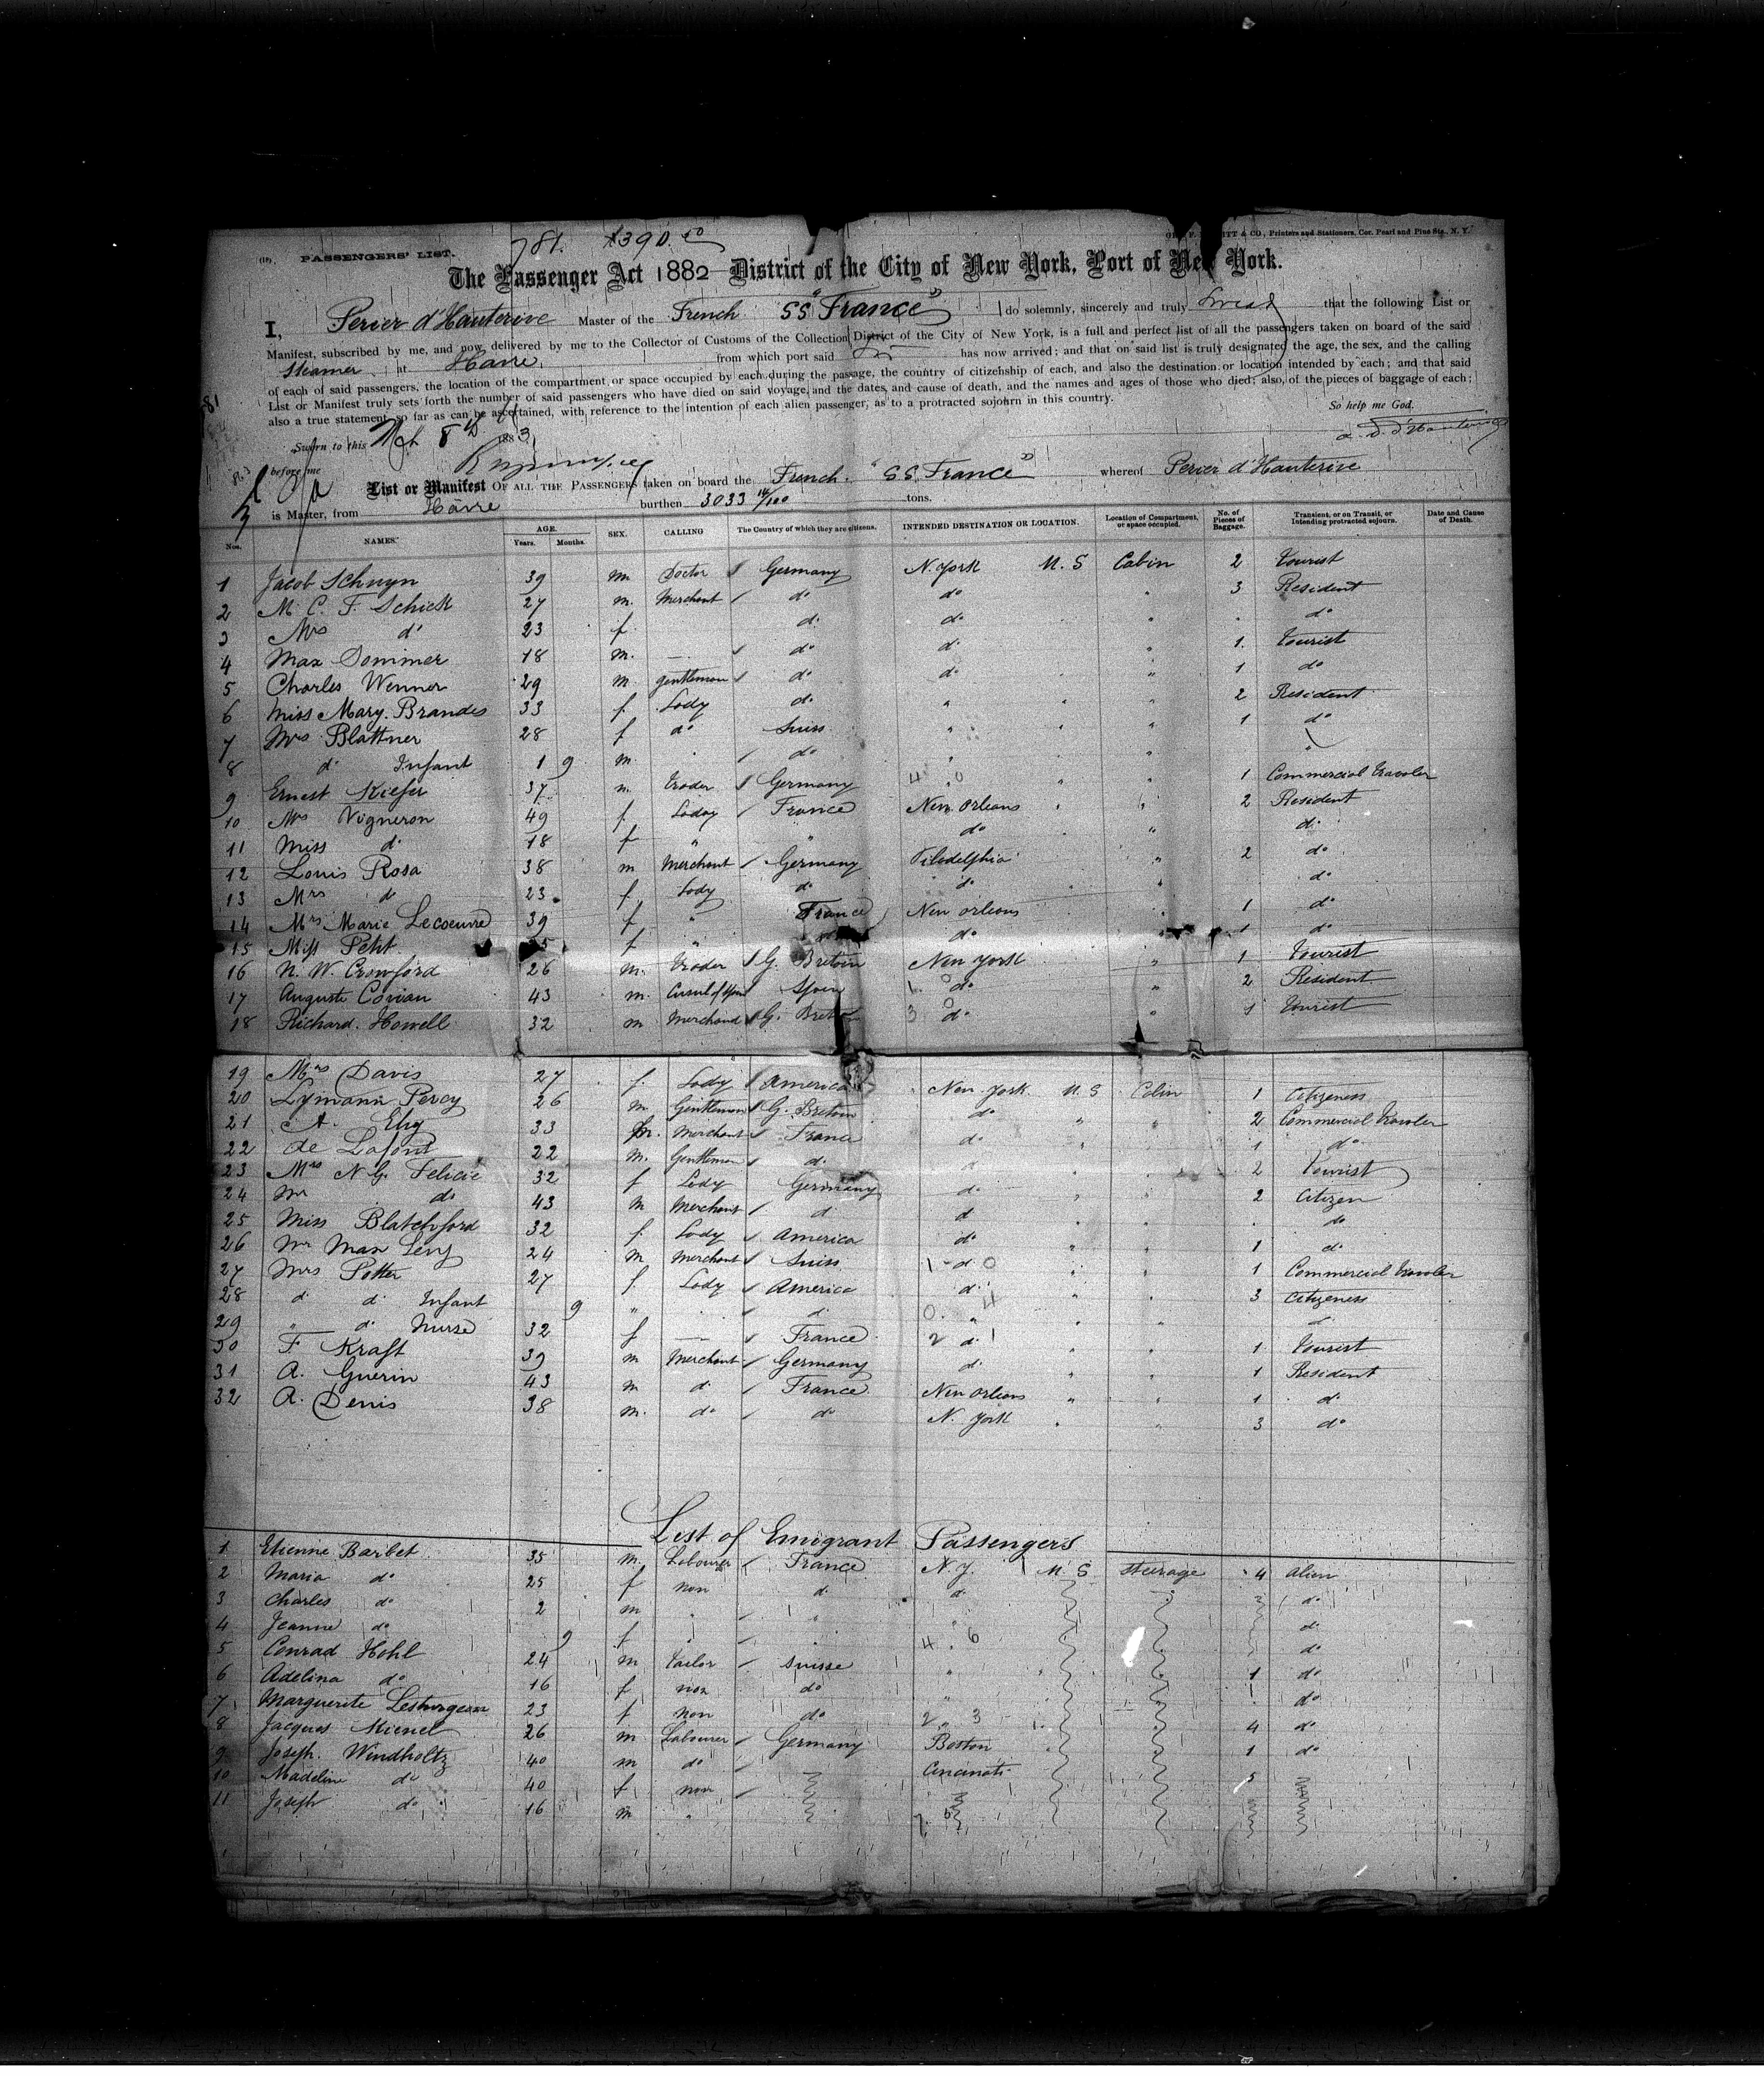 781. $390.50
(10) PASSENGERS' LIST.
& CO, Printers and Stationers, Cor. Pearl and Pine Sts., N. Y.
The Passenger Act 1882 District of the City of New York, Port of New York.
I, Perier d'Hauterive Master of the French SS "France" do solemnly, sincerely and truly Swear that the following List or
Manifest, subscribed by me, and now delivered by me to the Collector of Customs of the Collection District of the City of New York, is a full and perfect list of all the passengers taken on board of the said
Steamer at Havre, from which port said has now arrived; and that on said list is truly designated the age, the sex, and the calling
of each of said passengers, the location of the compartment or space occupied by each during the passage, the country of citizenship of each, and also the destination or location intended by each; and that said
List or Manifest truly sets forth the number of said passengers who have died on said voyage, and the dates and cause of death, and the names and ages of those who died; also, of the pieces of baggage of each;
also a true statement, so far as can be ascertained, with reference to the intention of each alien passenger, as to a protracted sojourn in this country.
So help me God.
Sworn to this Mch 8th 1883
before me
List or Manifest OF ALL THE PASSENGERS taken on board the French "SS France" whereof Perier d'Hauterive
is Master, from Havre burthen 3033 14/100 tons.
Nos. NAMES. AGE. Years. Months. SEX. CALLING The Country of which they are citizens. INTENDED DESTINATION OR LOCATION. Location of Compartment, or space occupied. No. of Pieces of Baggage. Transient, or on Transit, or Intending protracted sojourn. Date and Cause of Death.
1 Jacob Schuyn 39 m Doctor Germany N. York U. S Cabin 2 tourist
2 M. C. F. Schick 27 m. Merchant do do " 3 Resident
3 Mrs do 23 f. do do " . do
4 Max Sommer 18 m. — do do " 1. tourist
5 Charles Wenner 29 m gentleman do do " 1 do
6 Miss Mary Brandes 33 f Lady do " " " 2 Resident
7 Mrs Blattner 28 f do Suiss " " " 1 do
8 do Infant 1 9 m " do " " "
9 Ernest Kiefer 37 m. trader Germany 4 0 " 1 Commercial traveler
10 Mrs Vigneron 49 f. Lady France New Orleans " " 2 Resident
11 Miss do 18 f " " do " do
12 Louis Rosa 38 m Merchant Germany Filadelphia " 2 do
13 Mrs do 23 f. Lady do do " " do
14 Mrs Marie Lecoeuvre 39 f " France New orleans " 1 do
15 Miss Petit f " do " 1 do
16 N. W. Crowford 26 m. trader G. Bretain New York " 1 tourist
17 Auguste Corian 43 m. Consul of Spain Spain 1. do 0 " 2 Resident
18 Richard Howell 32 m Merchand G. Bretain 3 do 0 " 1 tourist
19 Mrs Davis 27 f. Lady America New York U S Cabin 1 Citizeness
20 Lymann Percy 26 m Gentleman G. Bretain do " " 2 Commercial traveler
21 A. Ehg 33 m. Merchant France do " 1 do
22 de Lafont 22 m. Gentleman do d " 2 tourist
23 Mrs N. G. Felicie 32 f Lady Germany do " 2 Citizen
24 Mr do 43 m Merchant d d " . do
25 Miss Blatchford 32 f. Lady America do " 1 do
26 Mr Max Levy 24 m Merchant Suiss 1 do 0 " 1 Commercial traveler
27 Mrs Potter 27 f Lady America do " 3 Citizeness
28 d d Infant 9 " . d 0. " 4 " do
29 " do Nurse 32 f — France 2 d 1 " 1 tourist
30 F. Kraft 39 m Merchant Germany do " 1 Resident
31 A. Guerin 43 m do France New Orleans " 1 do
32 A. Denis 38 m. do do N. York " 3 do
List of Emigrant Passengers
1 Etienne Barbet 35 m. Labourer France N. Y. U. S Steerage 4 alien
2 Maria do 25 f non d. d. do
3 Charles do 2 m " " do
4 Jeanne do 9 f " " 4 " 6 do
5 Conrad Hohl 24 m tailor Suisse " 1 do
6 Adelina do 16 f non do " do
7 Marguerite 23 f non do 2 " 3 4 do
8 Jacques 26 m Labourer Germany Boston 1 do
9 Joseph Windholtz 40 m do Cincinati 5
10 Madeline do 40 f non
11 Joseph do 16 m "